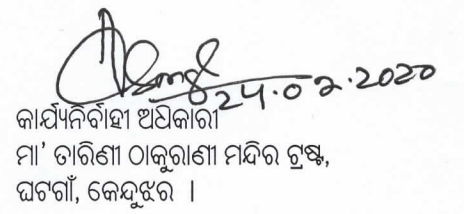 24.02.2020
କାର୍ଯ୍ୟନିର୍ବାହୀ ଅଧିକାରୀ
ମା' ତାରିଣୀ ଠାକୁରାଣୀ ମନ୍ଦିର ଟ୍ରଷ୍ଟ,
ଘଟଗାଁ, କେନ୍ଦୁଝର ।